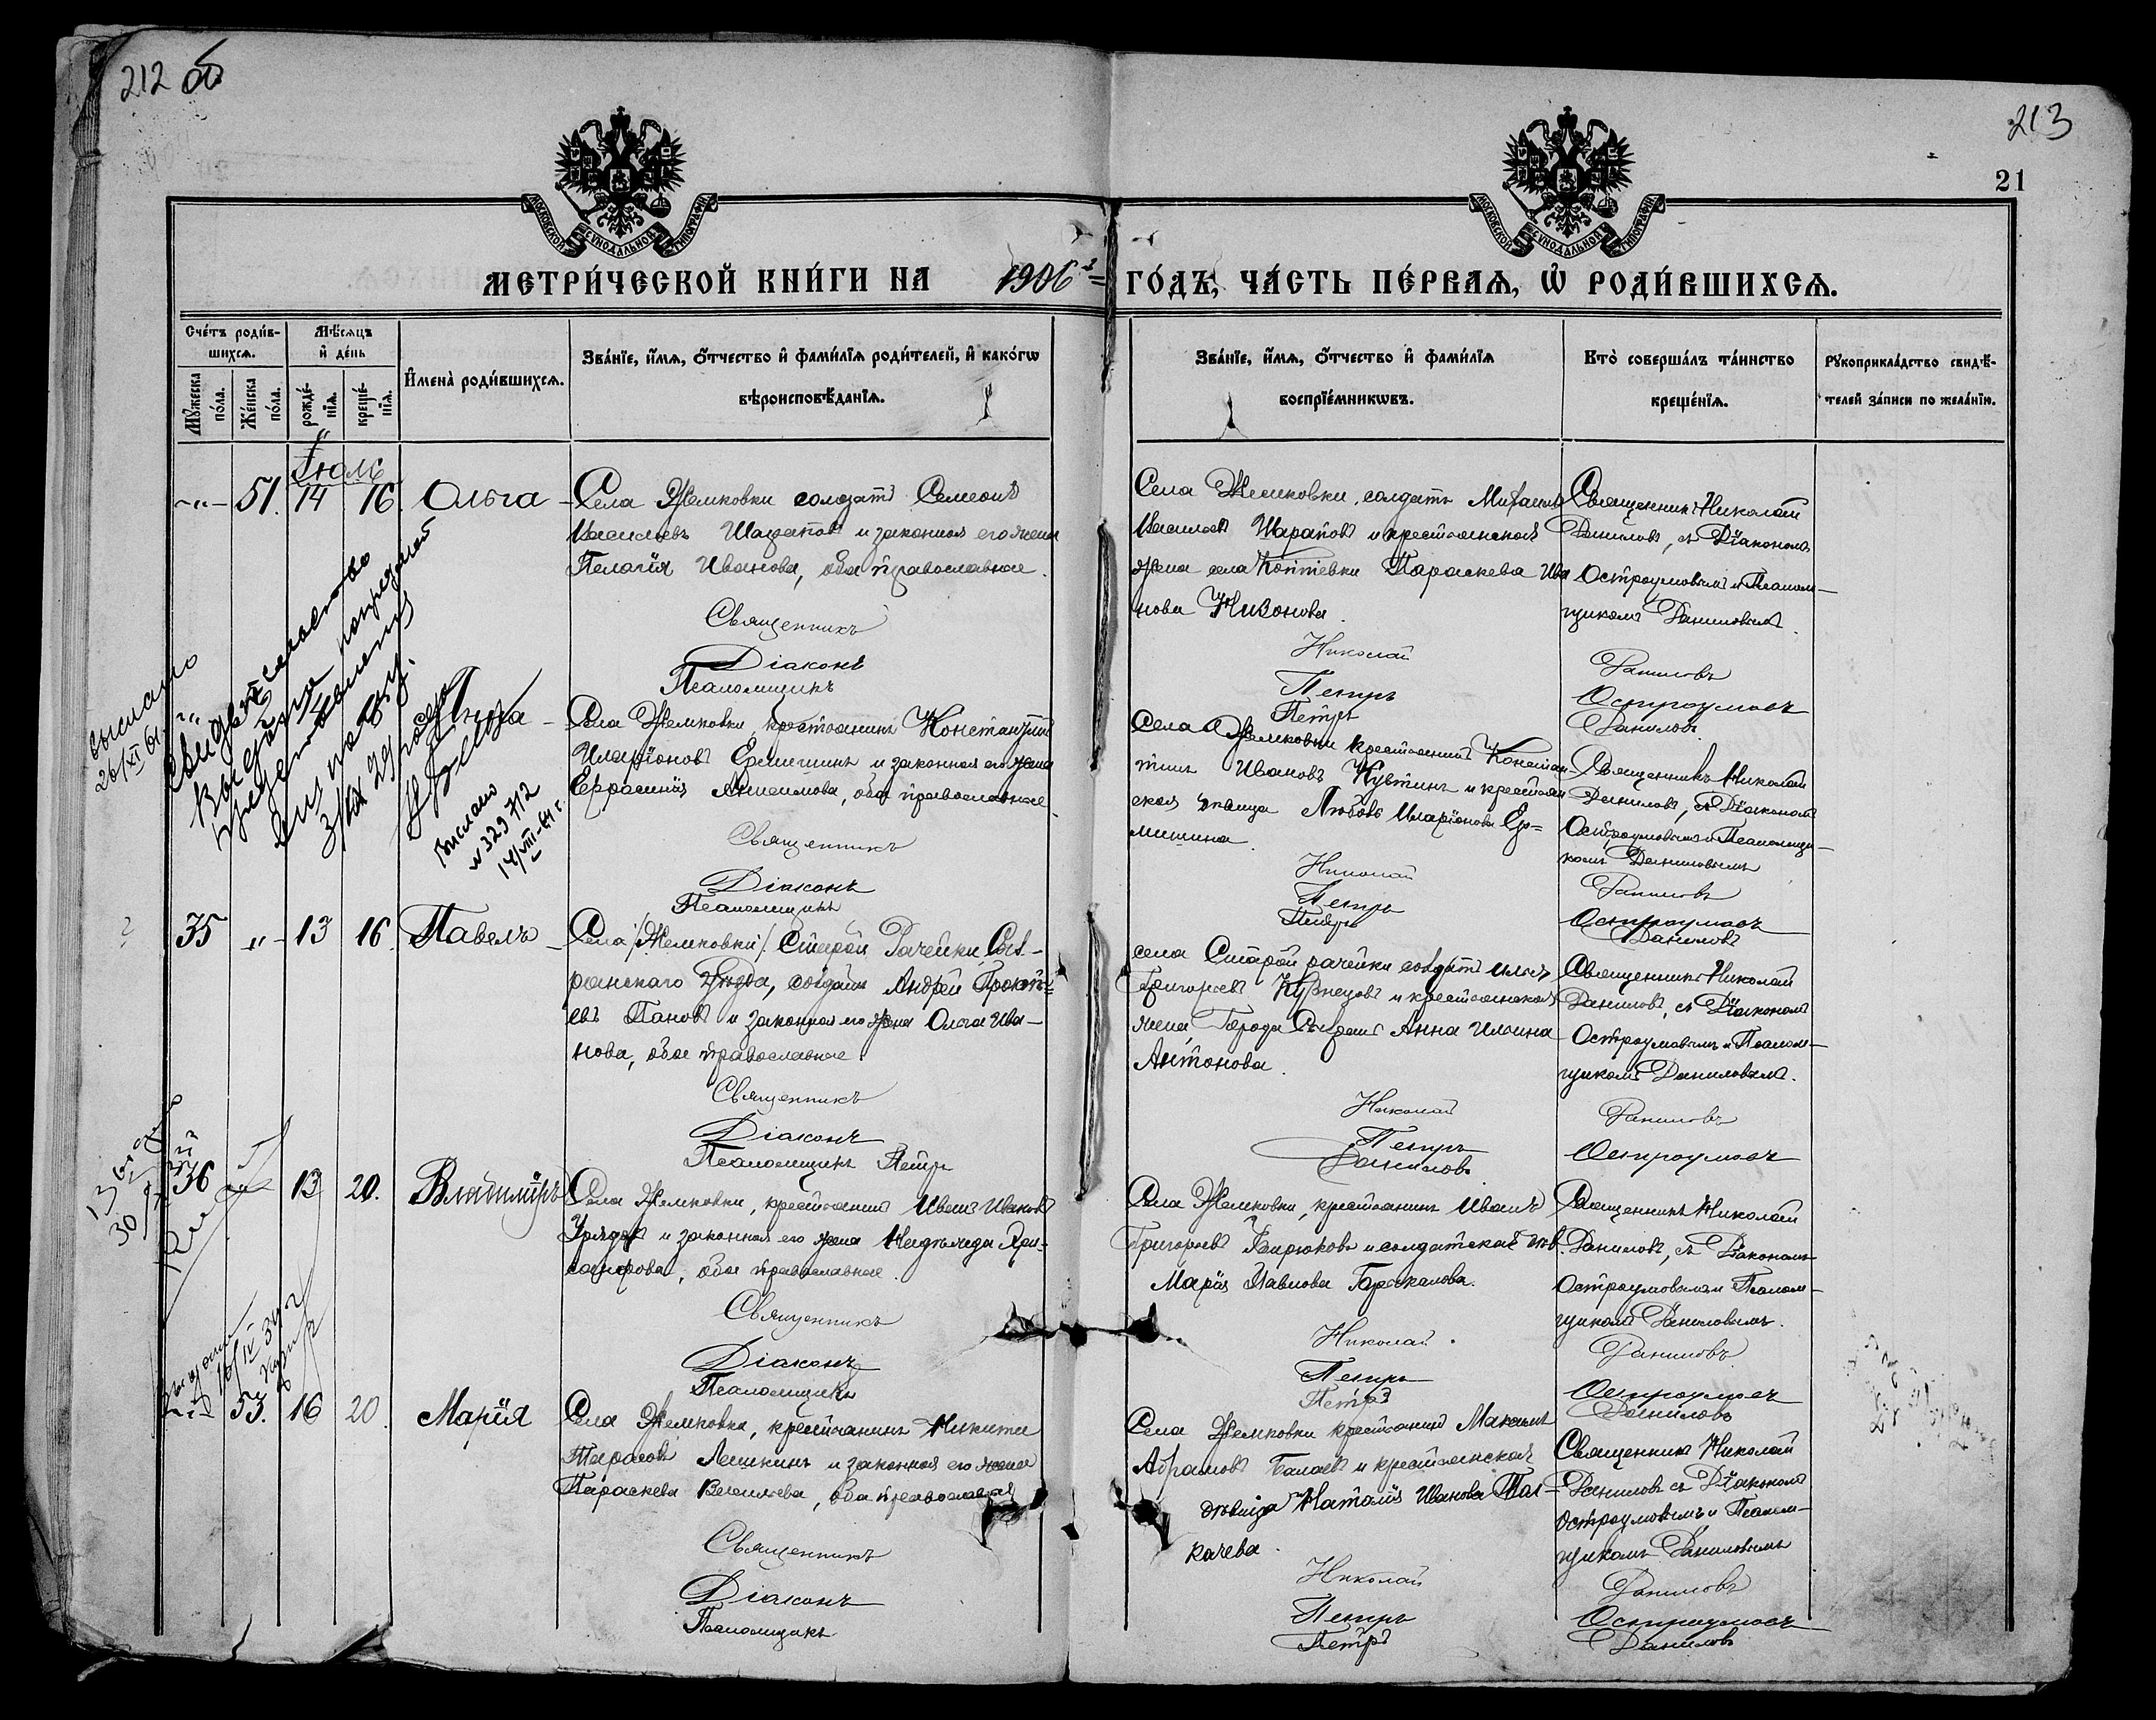 212 об
213
21
МОСКОВСКОЙ СѴНОДАЛЬНОЙ ТИПОГРАФІИ
МОСКОВСКОЙ СѴНОДАЛЬНОЙ ТИПОГРАФІИ
МЕТРИ́ЧЕСКОЙ КНИ́ГИ НА 1906 ГО́ДЪ, ЧА́СТЬ ПЕ́РВАѦ, Ѡ҆ РОДИ́ВШИХСѦ.
Сче́тъ роди́в-
шихсѧ.
Мѣ́сѧцъ
и҆ де́нь
Мꙋ́жеска
по́ла.
Же́нска
по́ла.
рожде́-
нїѧ.
креще́-
нїѧ.
И҆мена̀ роди́вшихсѧ.
Зва́нїе, и҆́мѧ, ѻ҆́тчество и҆ фами́лїѧ роди́телей, и҆ како́гѡ
вѣроисповѣ́данїѧ.
Зва́нїе, и҆́мѧ, ѻ҆́тчество и҆ фами́лїѧ
воспрїе́мникѡвъ.
Кто̀ соверша́лъ та́инство
креще́нїѧ.
Рꙋкоприкла́дство свидѣ́-
телей за́писи по жела́нїю.
Іюль
-"- 51. 14 16. Ольга
Села Жемковки солдатъ Семенъ
Васильевъ Шарапов и законная его жена
Пелагія Иванова, оба православные.
Священникъ
Діаконъ
Псаломщикъ
Села Жемковки, солдатъ Михаилъ
Васильевъ Шараповъ и крестьянская
жена села Коптевки Параскева Ива
нова Низонова.
Николай
Петръ
Петръ
Священникъ Николай
Даниловъ, съ Діакономъ
Остроумовымъ и Псалом-
щикомъ Даниловымъ.
Даниловъ
Остроумовъ
Даниловъ
выслано
свидетельство
Выслано
N 329712
14/VIII-64 г.
Села Жемковки, крестьянинъ Константинъ
Иларіоновъ Ермишинъ и законная его жена
Евфросинія Анисимова, оба православные
Священникъ
Діаконъ
Псаломщикъ
Села Жемковки крестьянинъ Констан-
тинъ Ивановъ Кувтинъ и крестьян
ская девица Любовь Иларіонова Ер=
мишина.
Николай
Петръ
Петръ
Священникъ Николай
Даниловъ, съ Діакономъ
Остроумовымъ и Псаломщи-
комъ Даниловымъ
Даниловъ
Остроумовъ
Даниловъ
35 -"- 13 16. Павелъ
Села /Жемковки/ Старой Рачейки, Сыз-
ранскаго уезда, солдатъ Андрей Прокопь=
евъ Пановъ и законная его жена Ольга Ива-
нова, обое православные.
Священникъ
Діаконъ
Псаломщикъ Петръ
села Старой рачейки солдатъ Илья
Григорьевъ Кузнецовъ и крестьянская
жена Города Сызрани Анна Ильина
Антонова.
Николай
Петръ
Даниловъ
Священникъ Николай
Даниловъ, съ Діакономъ
Остроумовымъ и Псалом-
щикомъ Даниловымъ.
Даниловъ
Остроумовъ
36 13 20. Владиміръ
Села Жемковки, крестьянинъ Иванъ Ивановъ
и законная его жена Надежда Хри-
санфова, обое православные.
Священникъ
Діаконъ
Псаломщикъ
Села Жемковки, крестьянинъ Иванъ
Григорьевъ Бирюковъ и солдатская дев.
Марія Павлова Баракалова.
Николай
Петръ
Петръ
Священникъ Николай
Даниловъ, съ Діакономъ
Остроумовымъ и Псалом-
щикомъ Даниловымъ.
Даниловъ
Остроумовъ
Даниловъ
53. 16 20. Марія
Села Жемковки, крестьянинъ Никита
Тарасовъ Лешкинъ и законная его жена
Параскева Васильева, оба православные
Священникъ
Діаконъ
Псаломщикъ
Села Жемковки крестьянинъ Максимъ
Абрамовъ Балаевъ и крестьянская
девица Наталія Иванова Тол-
качева.
Николай
Петръ
Петръ
Священникъ Николай
Даниловъ съ Діакономъ
Остроумовымъ и Псалом-
щикомъ Даниловымъ
Даниловъ
Остроумовъ
Даниловъ